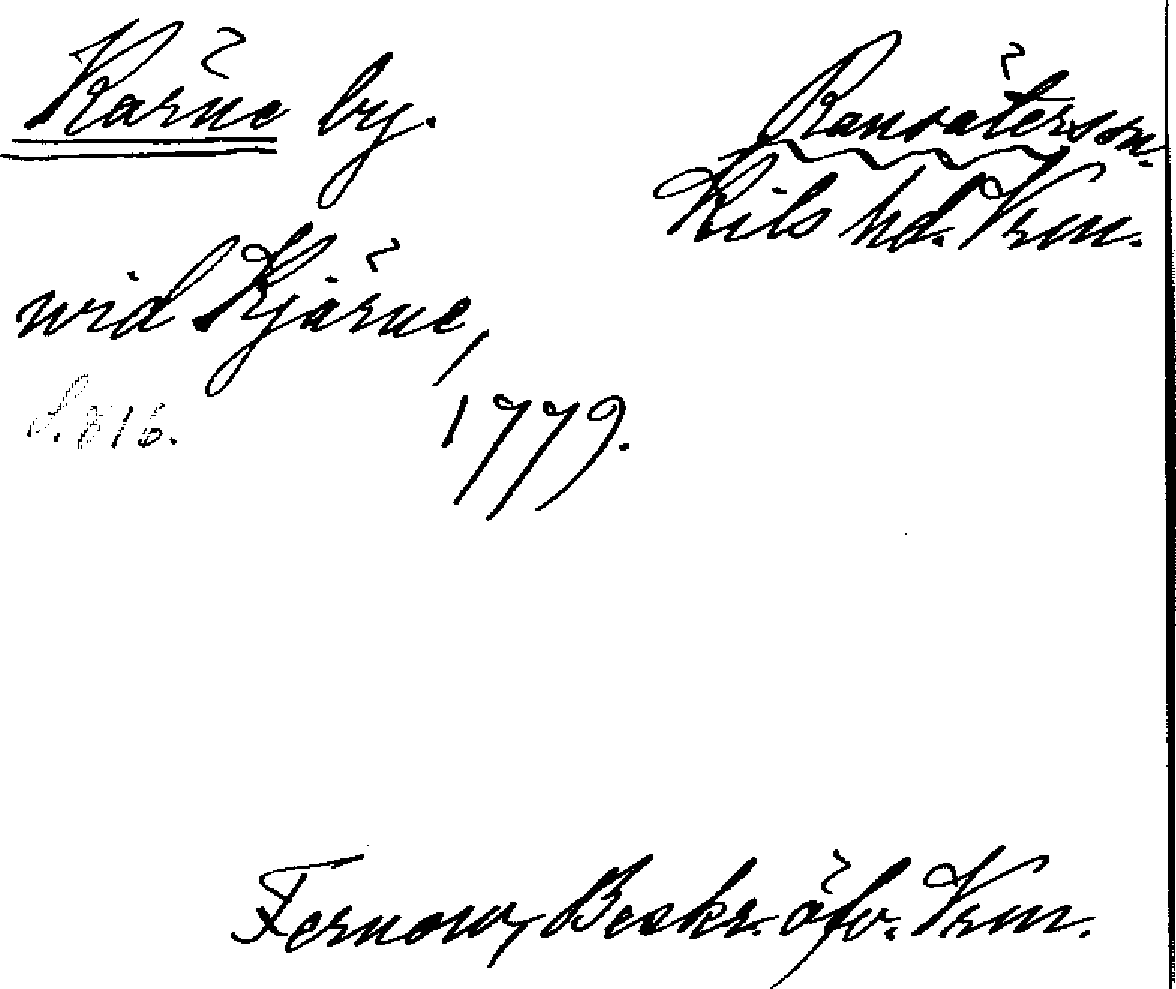 Kärne by.
Ransäter sn.
Kils hd. Vrm.
wid Kjärne,
S. 816.
1779.
Fernow, Beskr. öfv. Vrm.